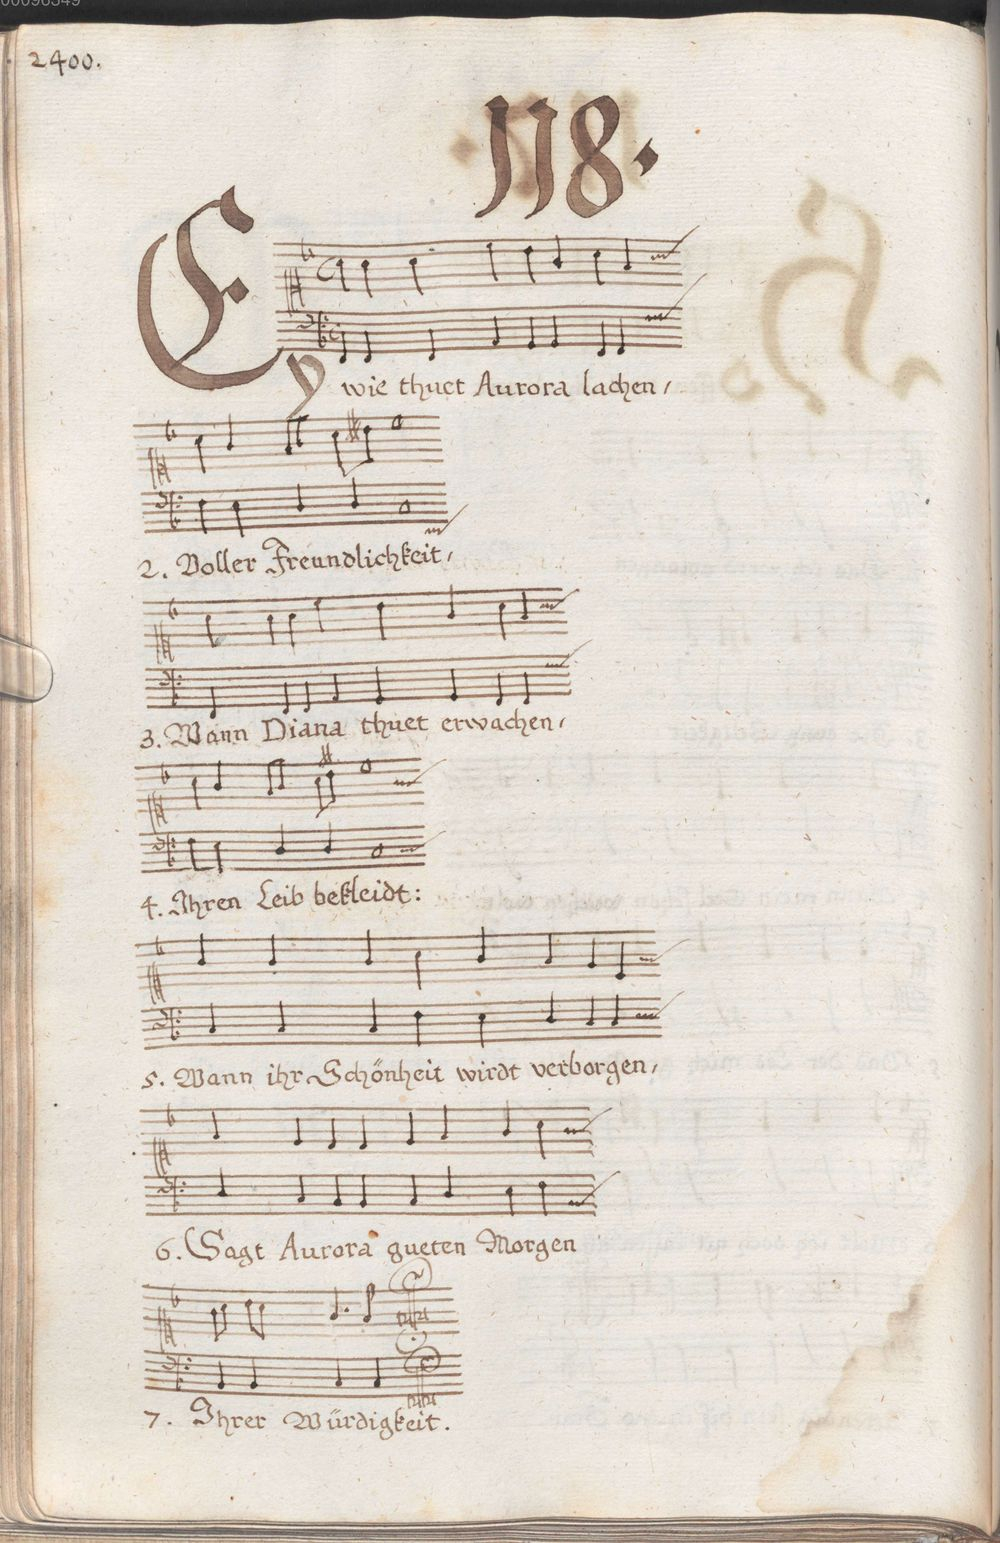 00096349
2400.
118.
Ey wie thuet Aurora lachen,
2. Voller Freundlichkeit,
3. Wann Diana thuet erwachen,
4. Ihren Leib bekleidt:
5. Wann ihr Schönheit wirdt verborgen,
6. Sagt Aurora gueten Morgen
7. Ihrer Würdigkeit.